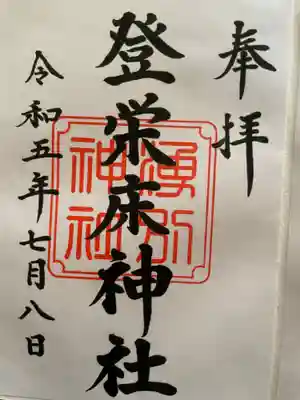 奉拝
登栄床神社
湧別
神社
令和五年七月八日